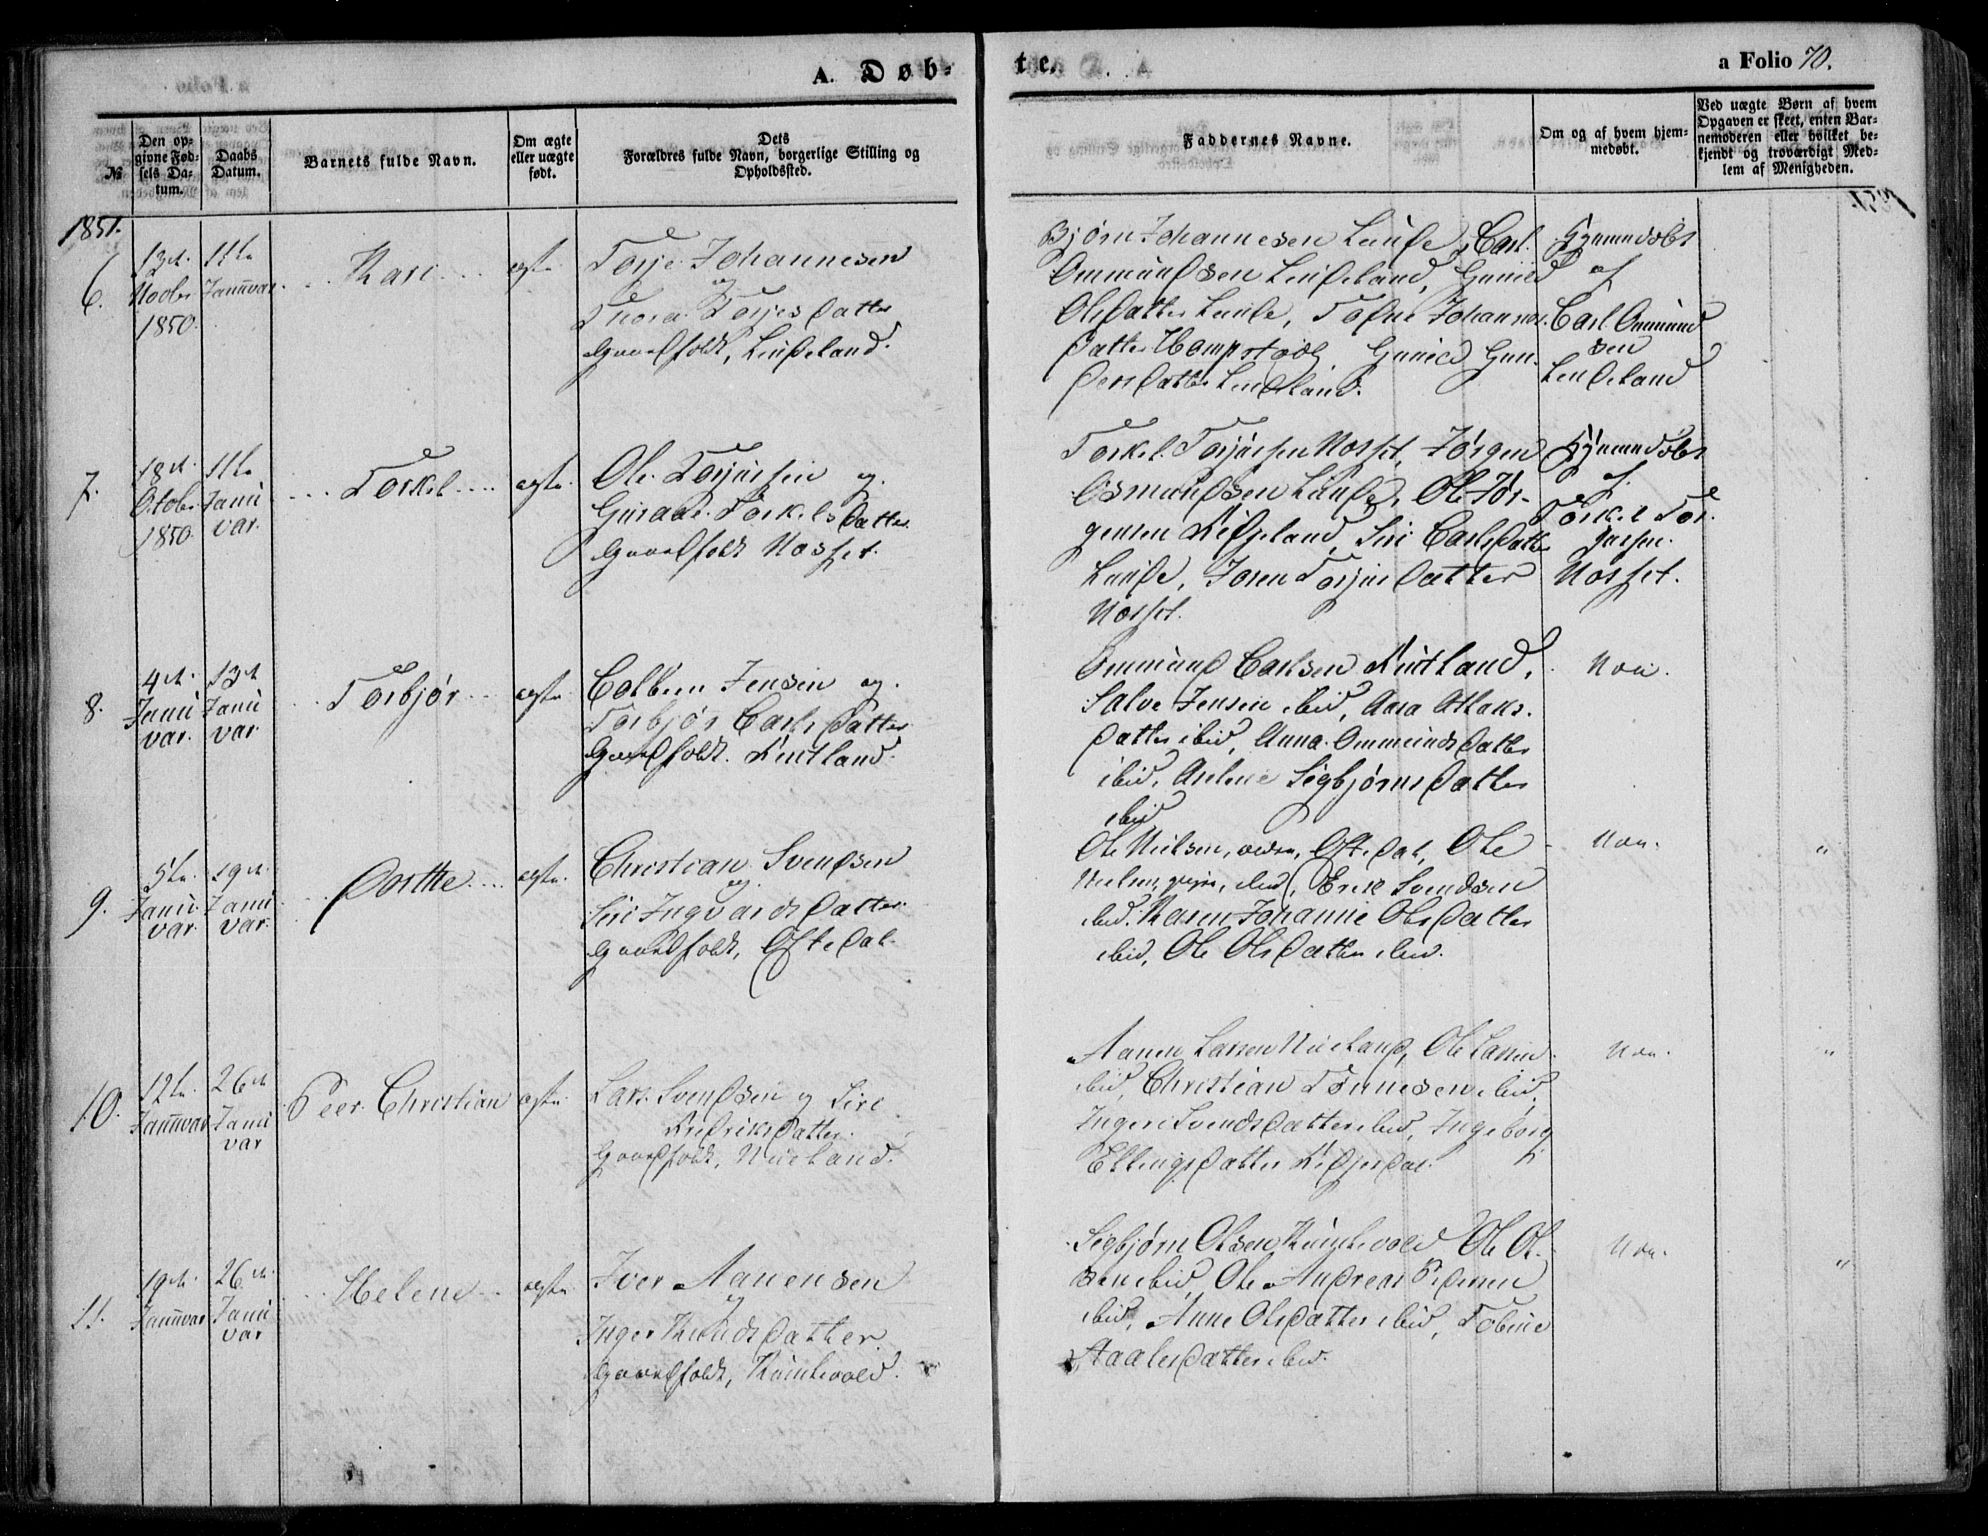 A. Døb-
te.
a Folio 70.
№
Den op-
givne Fød-
sels Da-
tum.
Daabs
Datum.
Barnets fulde Navn.
Om ægte
eller uægte
født.
Dets
Forældres fulde Navn, borgerlige Stilling og
Opholdssted.
Faddernes Navne.
Om og af hvem hjem-
medøbt.
Ved uægte Børn af hvem
Opgaven er skeet, enten Bar-
nemoderen eller hvilket be-
kjendt og troværdigt Med-
lem af Menigheden.
1851.
6.
13de
Novbr
1850.
11te
Januar.
Kari
ægte
Torje Johannesen
og
Thora Torjesdatter
Gaardfolk, Lindeland.
Bjørn Johannesen Lunde, Carl
Ommundsen Lindeland, Gunild
Olsdatter Lunde, Tofne Johannes-
datter Hompstad, Gunild Gun-
dersdatter Lindeland.
Hjemmedøbt
af
Carl Ommund
sen
Lindeland
7.
18de
Octobr
1850.
11te
Janu
var.
Torkel
ægte
Ole Torjussen og
Guraae Torkelsdatter
Gaardfolk Mosset.
Torkel Torjussen Mosset, Jørgen
Osmundsen Lunde, Ole Jør-
gensen Refsland, Siri Carlsdatter
Lunde, Joren Torjusdatter
Mosset.
Hjemmedøbt
af
Torkel Tor-
jussen
Mosset.
8.
4de
Janu
var.
13de
Janu
var.
Torbjør
ægte
Colben Jensen og
Torbjør Carlsdatter
Gaardfolk. Rudland.
Ommund Carlsen Rudland,
Salve Jensen ibid, Aasa Atlaks-
datter ibid, Anna Ommundsdatter
ibid, Aselene Sigbjørnsdatter
ibid
Nei.
9.
5te
Janu
var.
19de
Janu
var.
Dorthe
ægte
Christian Svendsen
og
Siri Ingvardsdatter
Gaardfolk, Oftedal.
Ole Nielsen, ældre, Oftedal, Ole
Nielsen, yngre, ibid, Erik Svendsen
ibid. Karen Johanne Olsdatter
ibid, Ole Olsdatter ibid.
Nei.
"
10.
12te
Januvar
26de
Janu
var
Peer Christian
ægte
Lars Svendsen og Siri
Fredriksdatter
Gaardfolk, Nueland.
Aanen Larsen Nueland, Ole Larsen
ibid, Christian Tønnesen ibid,
Ingeri Svendsdatter ibid, Ingeborg
Ellingsdatter Refsjedal.
Nei.
"
11.
19de
Januvar
26de
Janu
var
Helene
ægte
Iver Aanensen
og
Inger Knudsdatter
Gaardfolk, Kumlevold.
Sigbjørn Olsen Kumlevold Ole Ol-
sen ibid, Ole Andreas Pedersen
ibid, Anne Olsdatter ibid, Tobine
Staalesdatter ibid.
Nei.
"